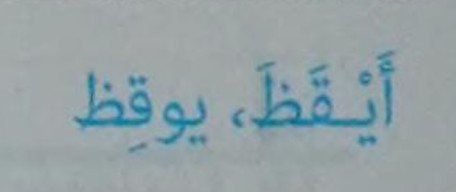 أَيْقَظَ، يوقِظ